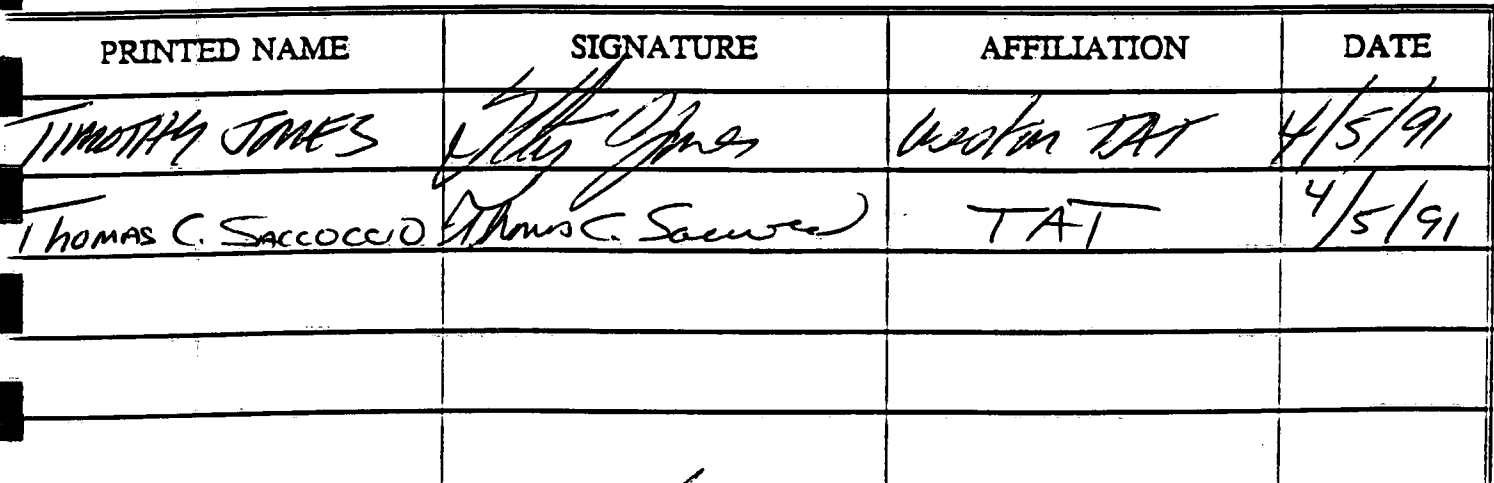 PRINTED NAME SIGNATURE AFFILIATION DATE
TIMOTHY JONES Jones Weston TAT 4/5/91
Thomas C. Saccoccio Thomas C. Saccoccio TAT 4/5/91